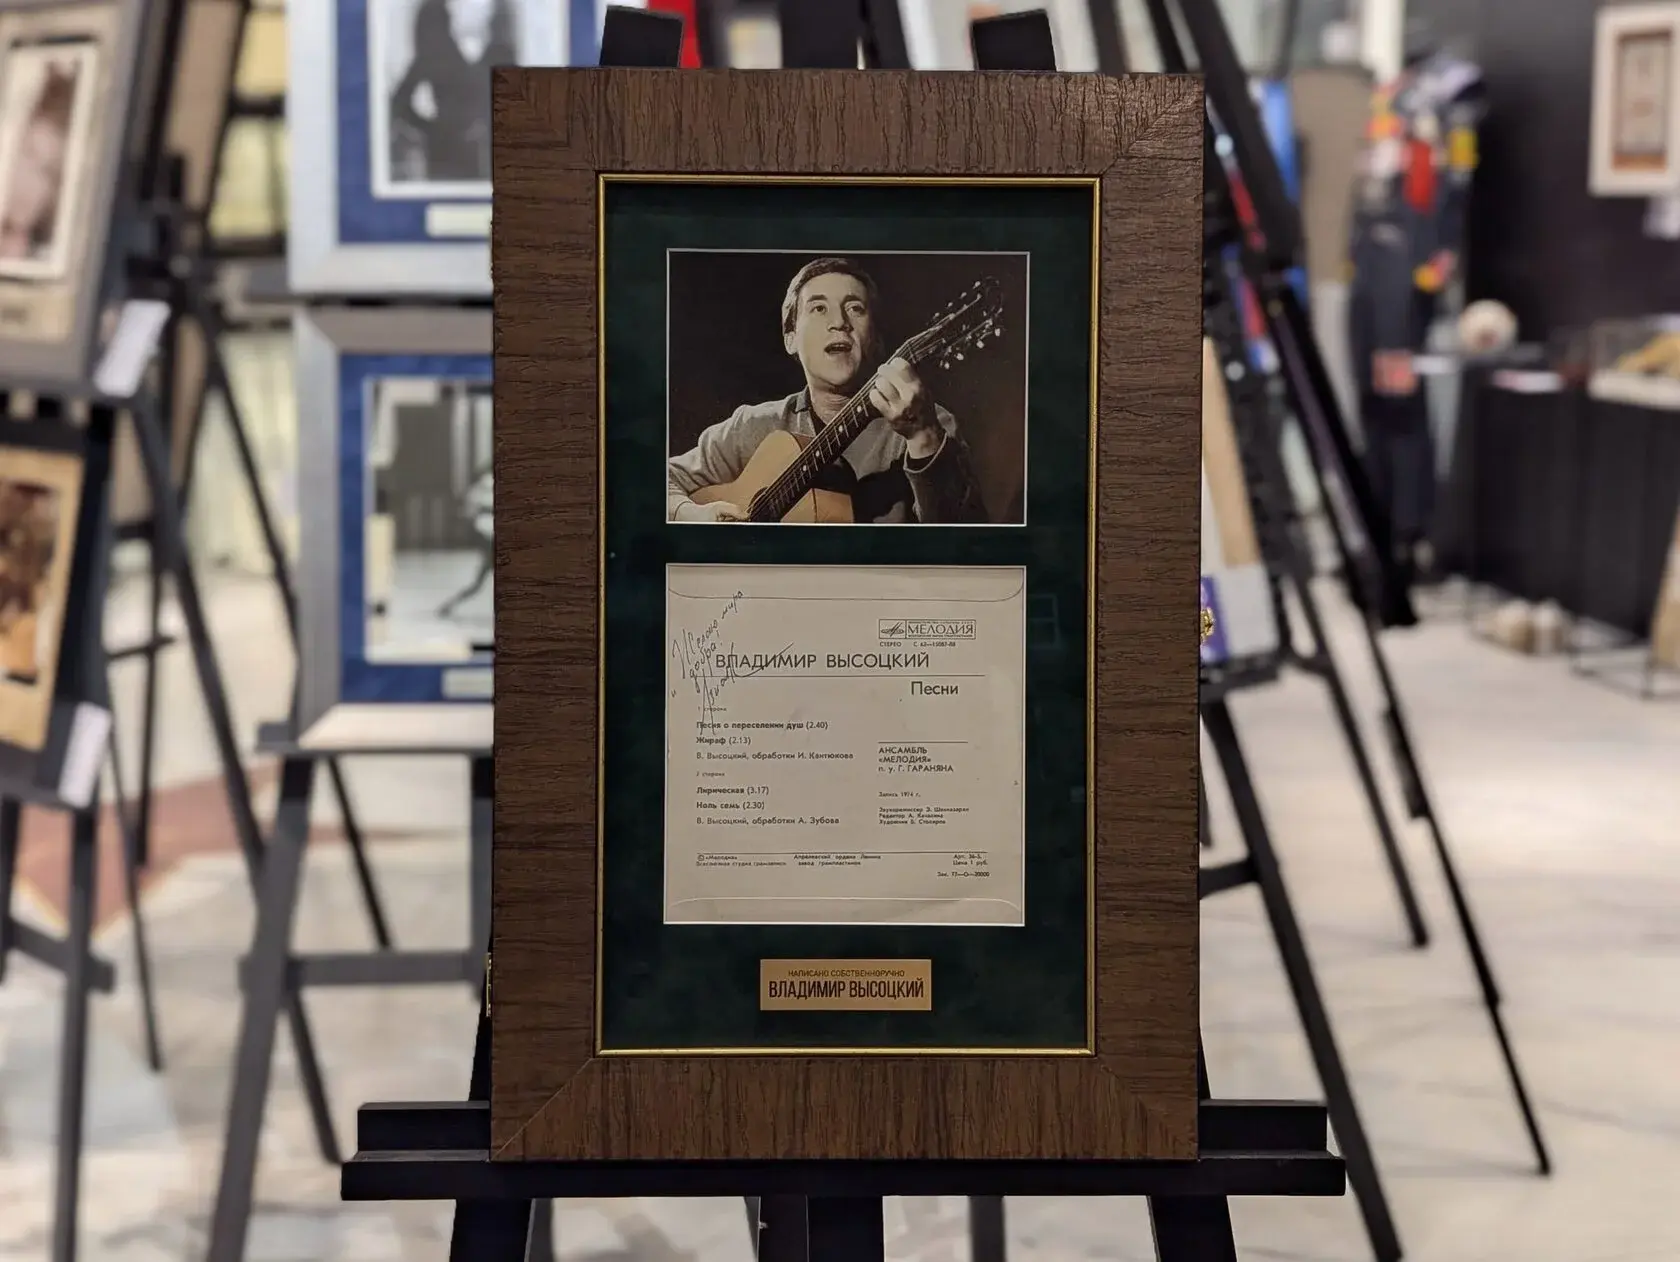 Желаю мира
и добра!
МЕЛОДИЯ
СТЕРЕО С 62—15087-88
ВЛАДИМИР ВЫСОЦКИЙ
Песни
1 сторона
Песня о переселении душ (2.40)
Жираф (2.13)
В. Высоцкий, обработки И. Кантюкова
2 сторона
Лирическая (3.17)
Ноль семь (2.30)
В. Высоцкий, обработки А. Зубова
АНСАМБЛЬ
«МЕЛОДИЯ»
п. у. Г. ГАРАНЯНА
Запись 1974 г.
Звукорежиссер Э. Шахназарян
Редактор А. Качалина
Художник Б. Столяров
© «Мелодия»
Всесоюзная студия грамзаписи
Апрелевский ордена Ленина
завод грампластинок
Арт. 36-5.
Цена 1 руб.
Зак. 77—0—20000
НАПИСАНО СОБСТВЕННОРУЧНО
ВЛАДИМИР ВЫСОЦКИЙ